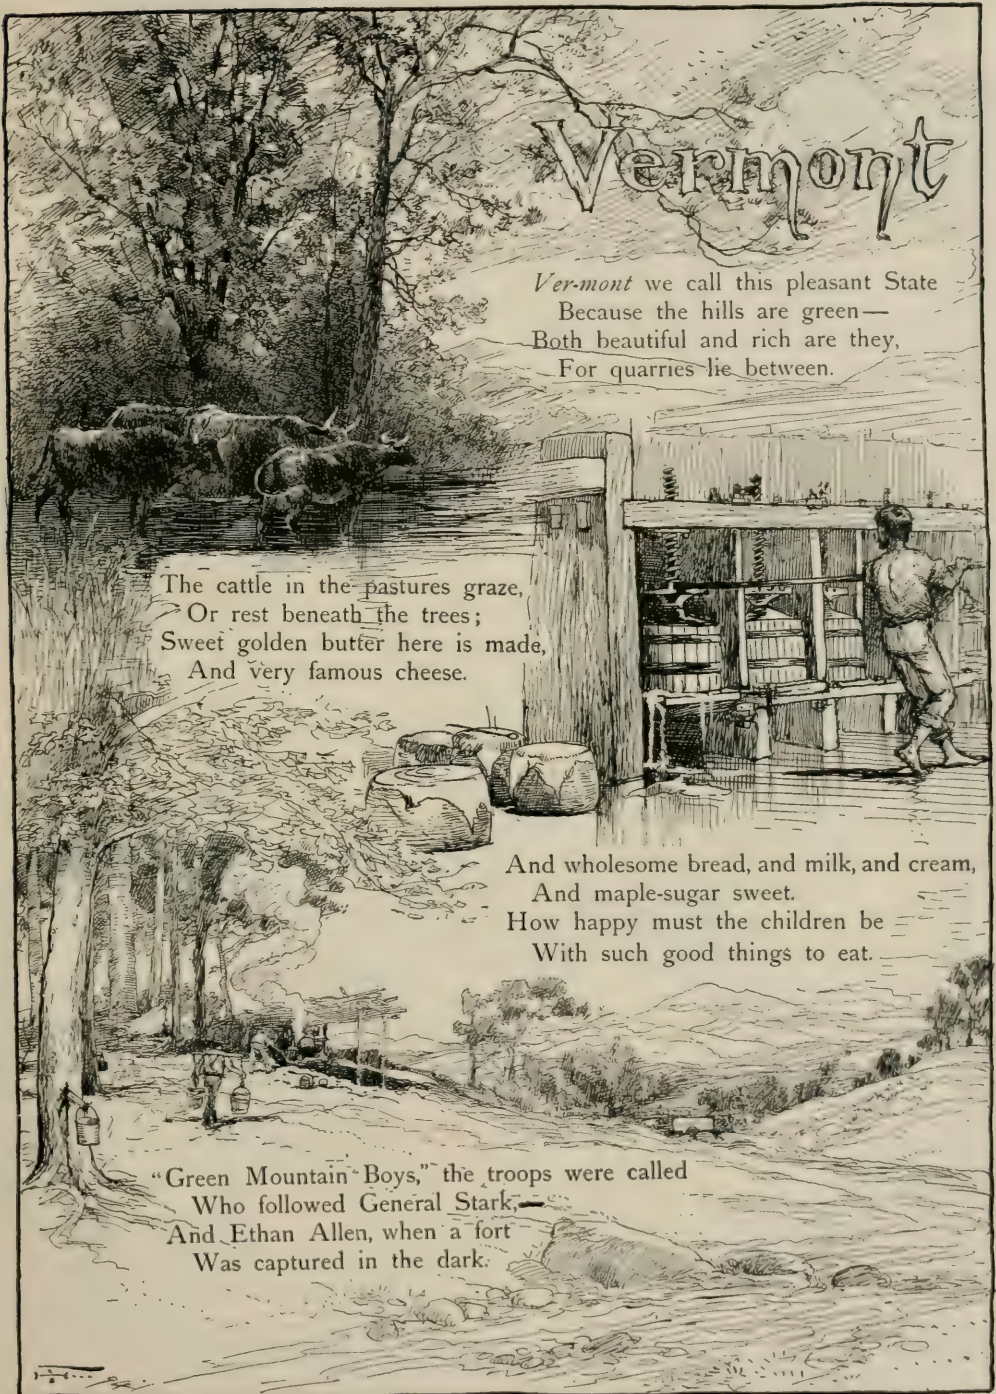 Vermont
Ver-mont we call this pleasant State
Because the hills are green—
Both beautiful and rich are they,
For quarries lie between.
The cattle in the pastures graze,
Or rest beneath the trees;
Sweet golden butter here is made,
And very famous cheese.
And wholesome bread, and milk, and cream,
And maple-sugar sweet.
How happy must the children be
With such good things to eat.
"Green Mountain Boys," the troops were called
Who followed General Stark,—
And Ethan Allen, when a fort
Was captured in the dark.